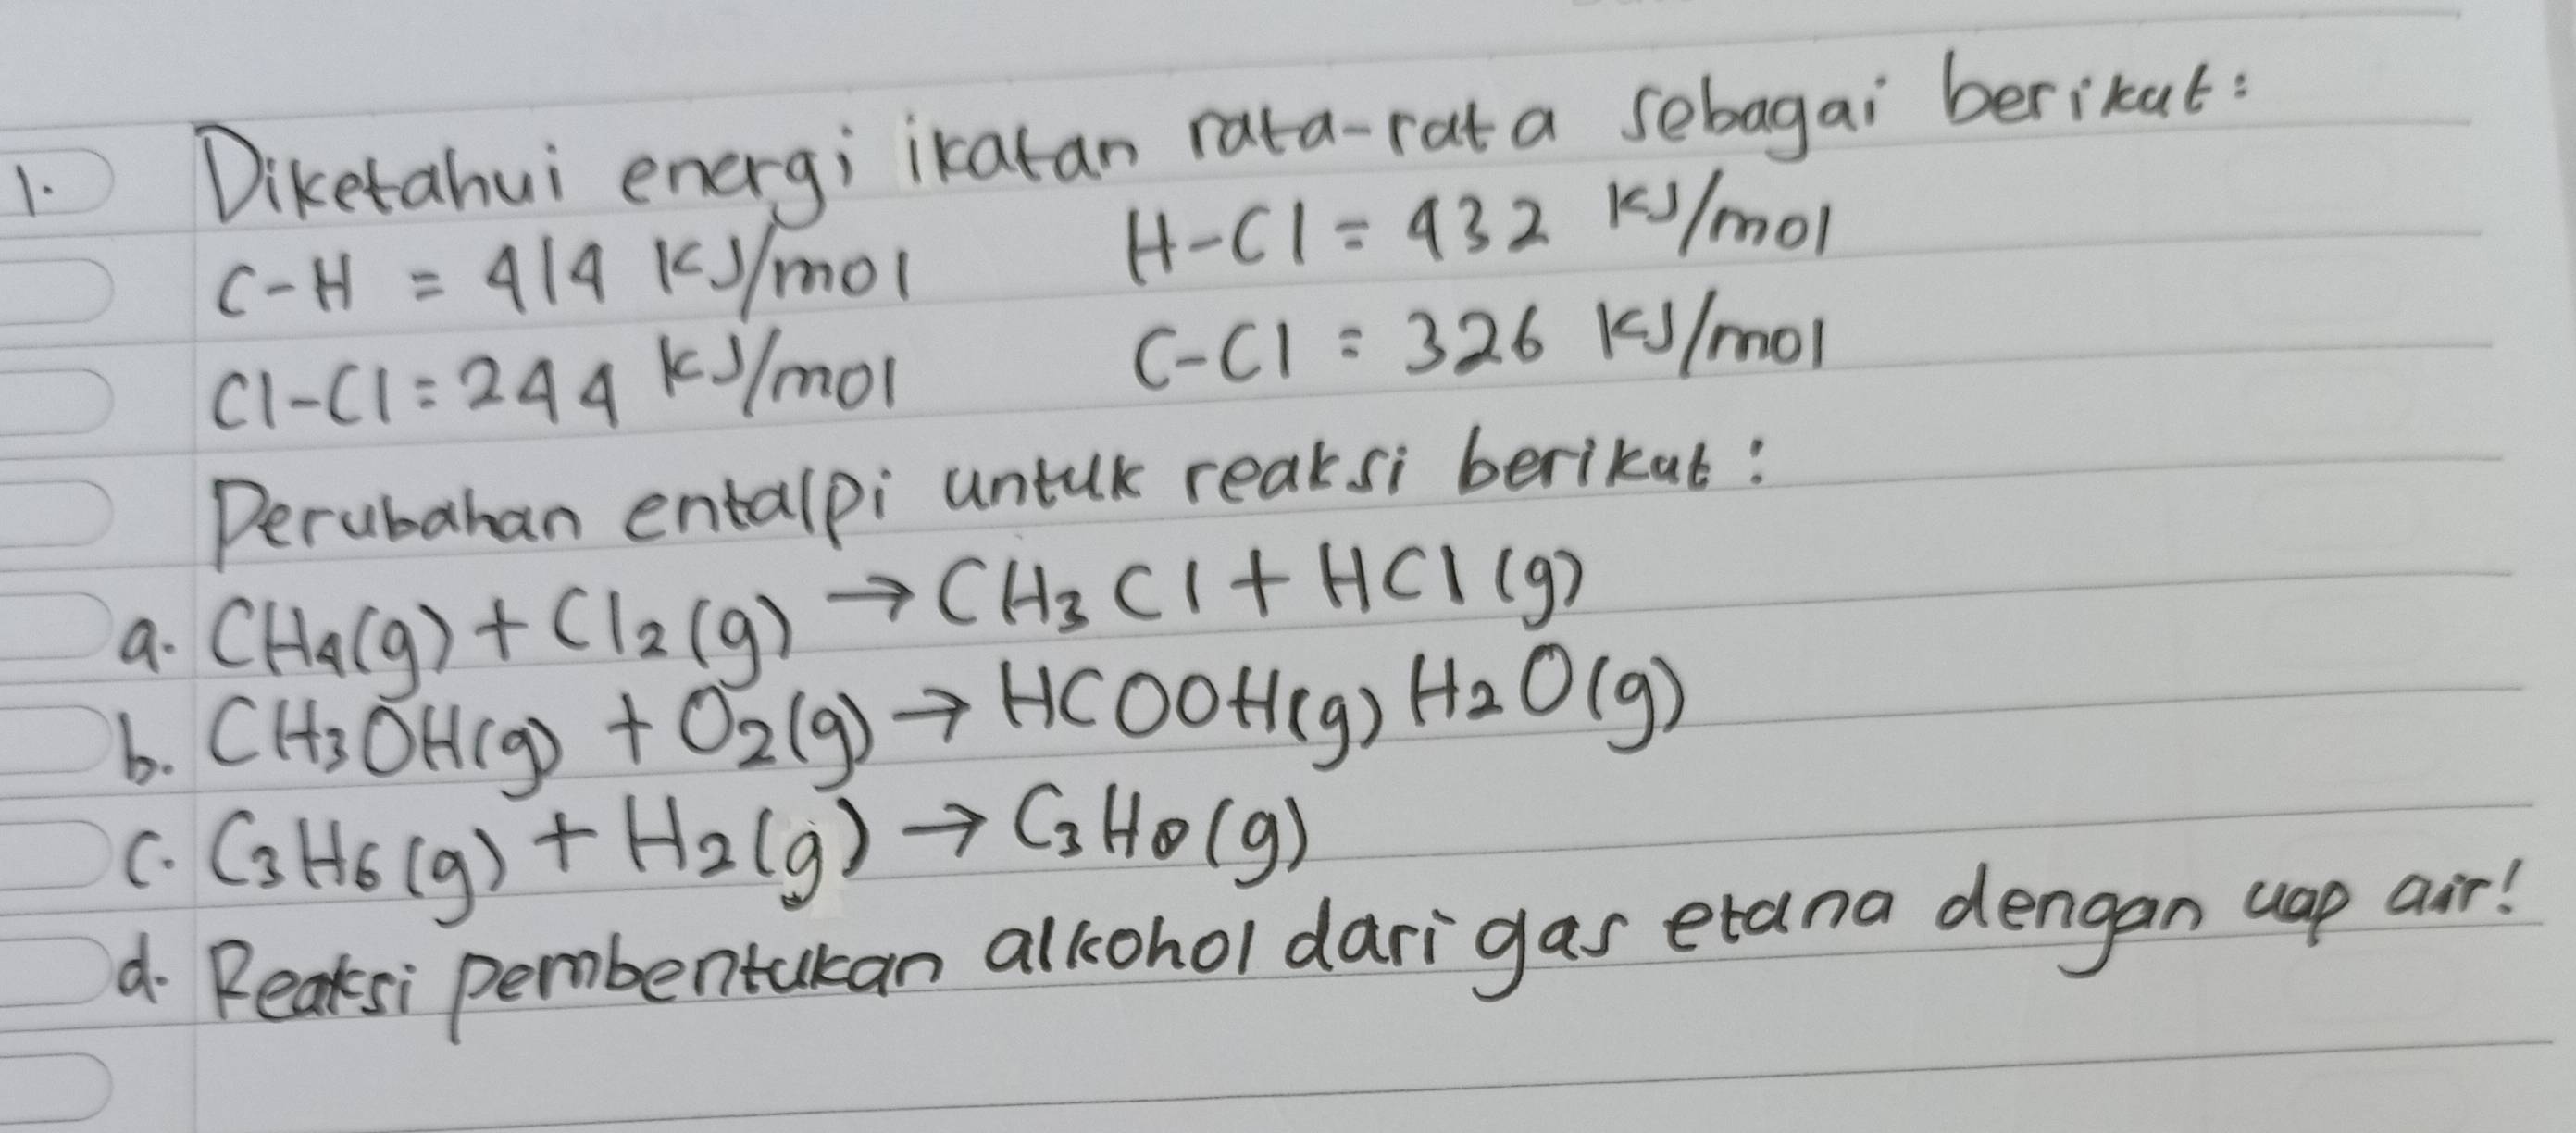 1. Diketahui energi ikatan rata-rata sebagai berikut:
C-H = 414 KJ/mol H-Cl = 432 KJ/mol
Cl-Cl = 244 KJ/mol C-Cl = 326 KJ/mol
Perubahan entalpi untuk reaksi berikut:
a. CH₄(g) + Cl₂(g) → CH₃Cl + HCl(g)
b. CH₃OH(g) + O₂(g) → HCOOH(g) H₂O(g)
c. C₃H₆(g) + H₂(g) → C₃H₈(g)
d. Reaksi pembentukan alkohol dari gas etana dengan uap air!